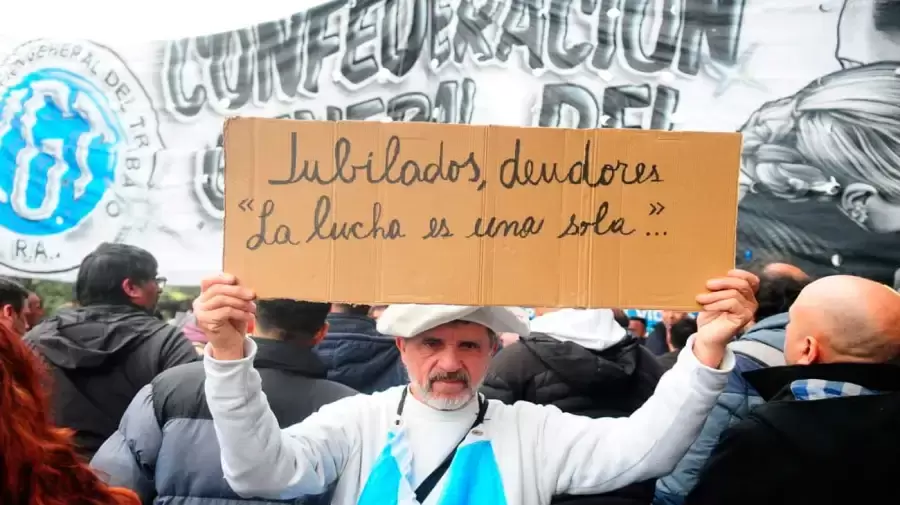 CONFEDERACIÓN
GENERAL DEL
GENERAL DEL TRABAJO
CGT
R.A.
Jubilados, deudores
“La lucha es una sola...”